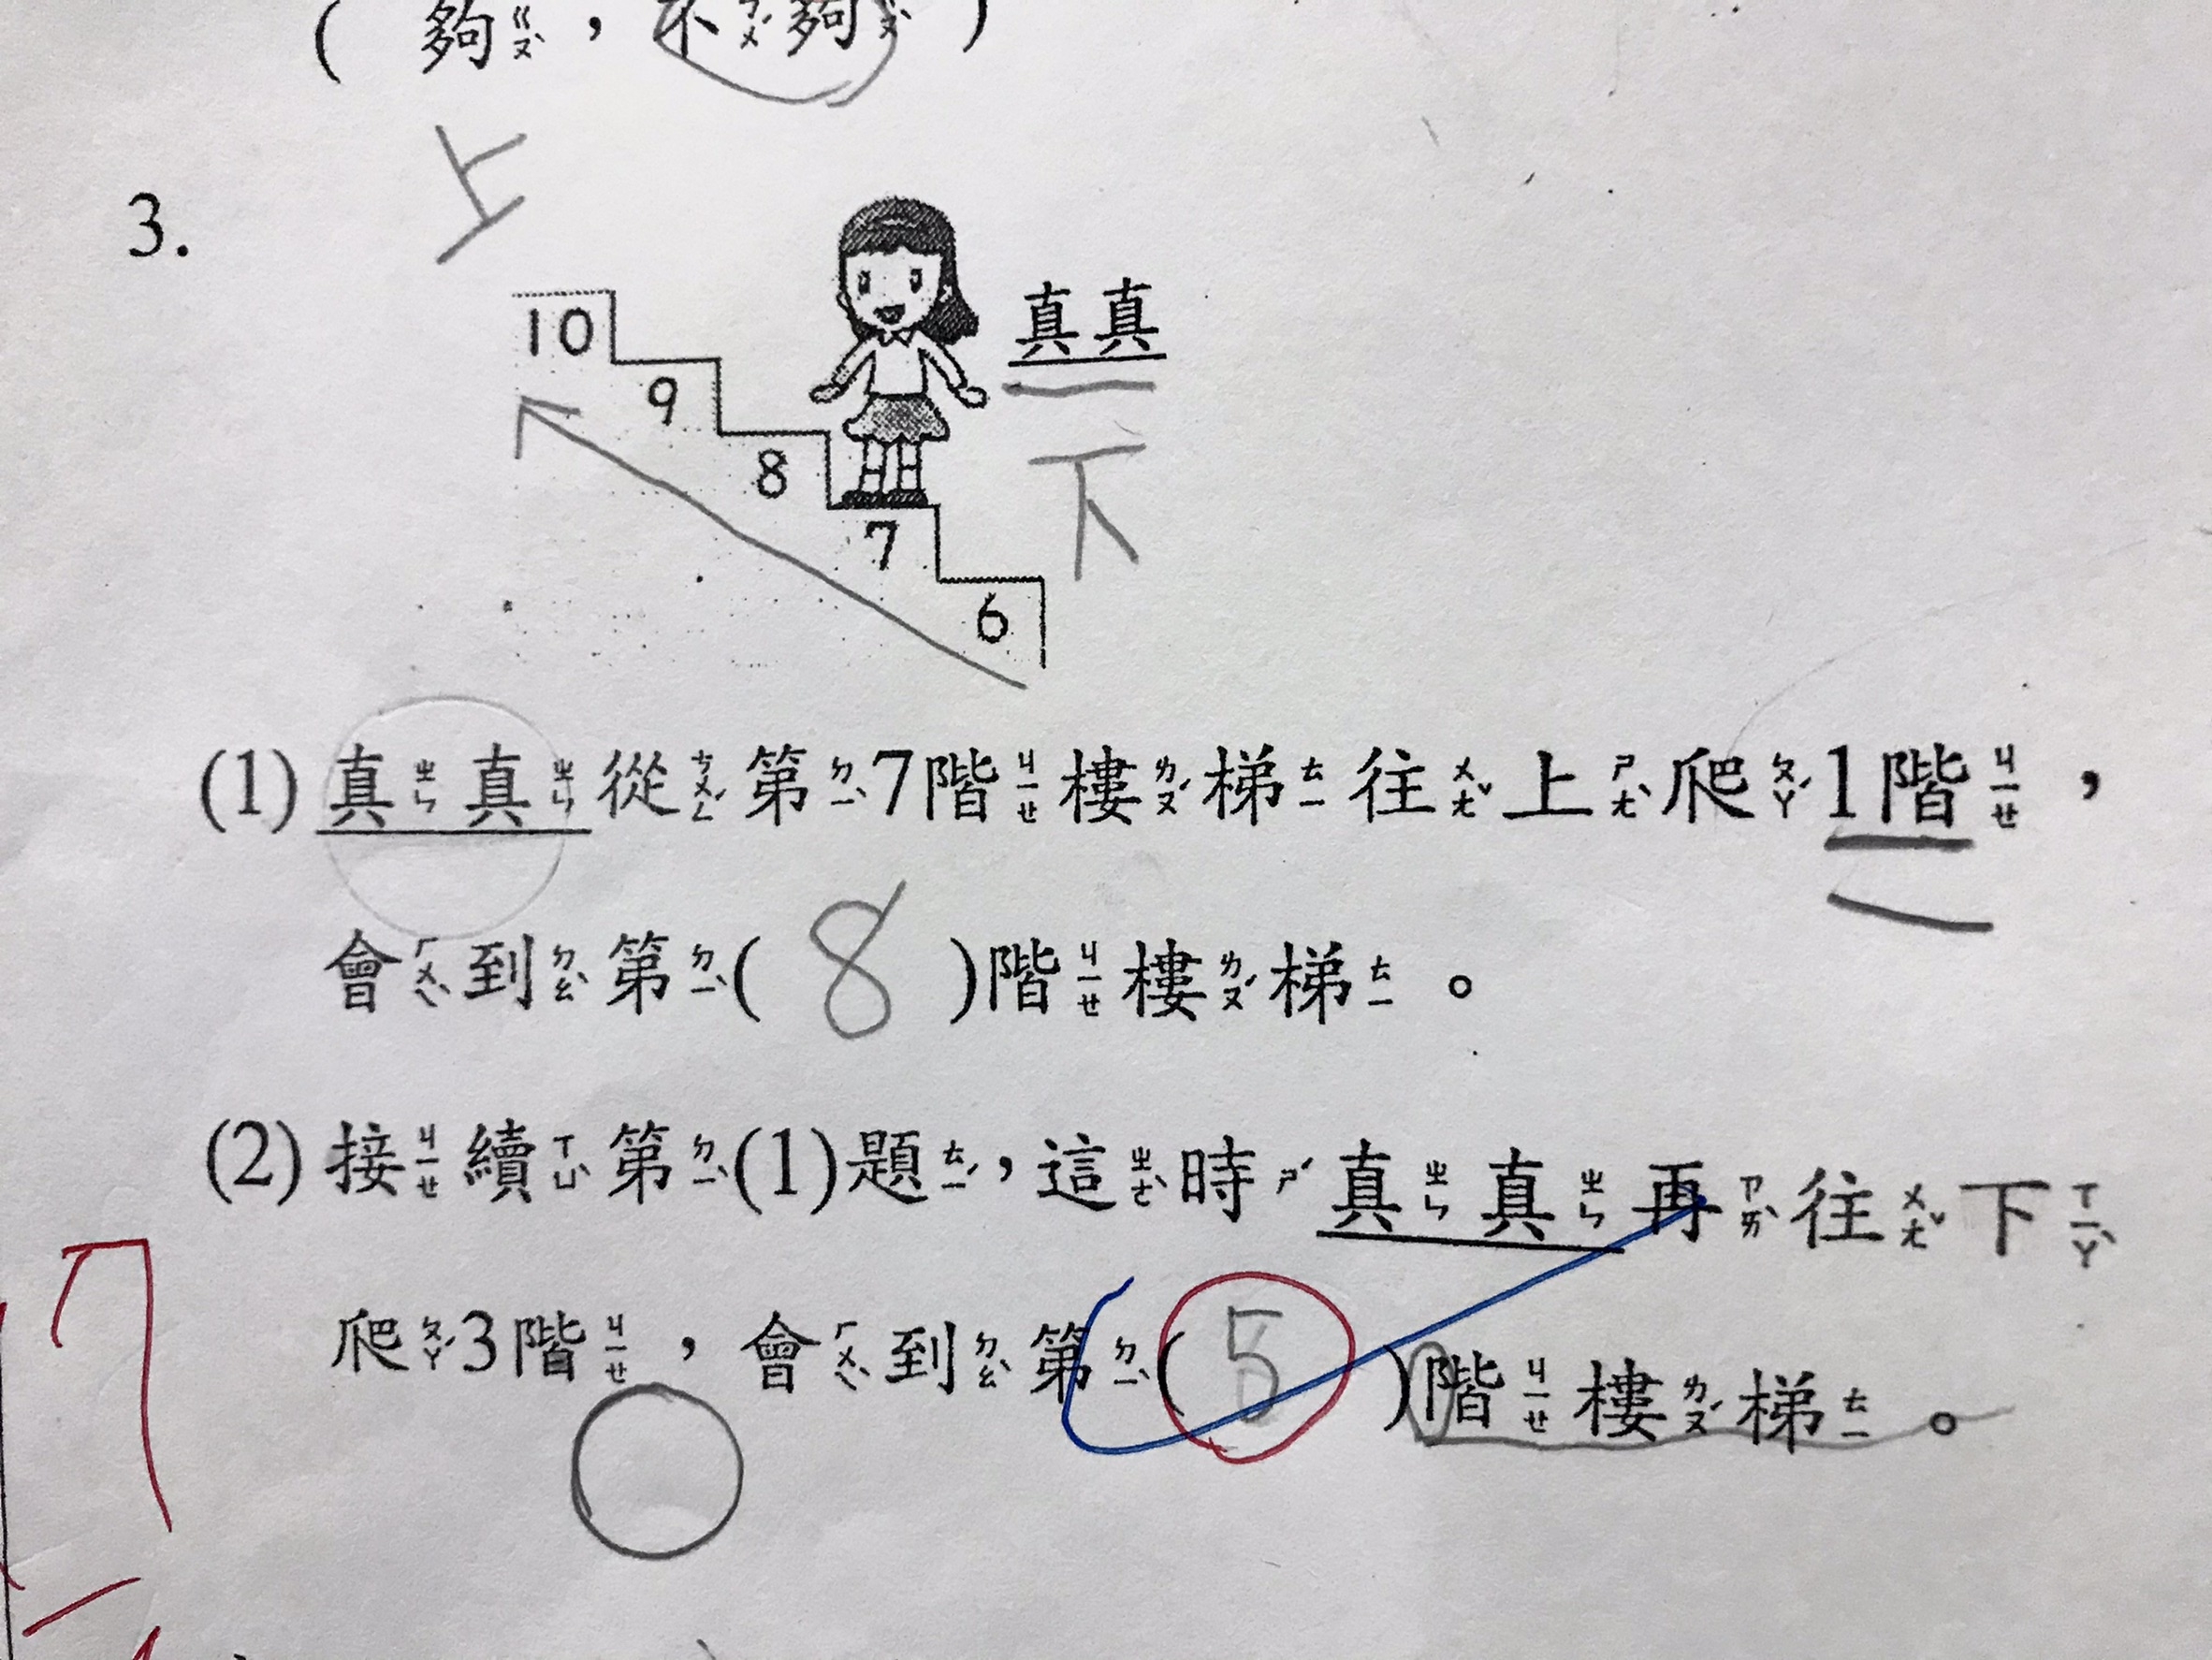 ( 夠ㄍㄡˋ，不ㄅㄨˊ夠ㄍㄡˋ )
上
3.
10
真真
9
下
8
7
6
(1) 真ㄓㄣ真ㄓㄣ從ㄘㄨㄥˊ第ㄉㄧˋ7階ㄐㄧㄝ樓ㄌㄡˊ梯ㄊㄧ往ㄨㄤˇ上ㄕㄤˋ爬ㄆㄚˊ1階ㄐㄧㄝ，
會ㄏㄨㄟˋ到ㄉㄠˋ第ㄉㄧˋ( 8 )階ㄐㄧㄝ樓ㄌㄡˊ梯ㄊㄧ。
(2) 接ㄐㄧㄝ續ㄒㄩˋ第ㄉㄧˋ(1)題ㄊㄧˊ，這ㄓㄜˋ時ㄕˊ真ㄓㄣ真ㄓㄣ再ㄗㄞˋ往ㄨㄤˇ下ㄒㄧㄚˋ
爬ㄆㄚˊ3階ㄐㄧㄝ，會ㄏㄨㄟˋ到ㄉㄠˋ第ㄉㄧˋ( 5 )階ㄐㄧㄝ樓ㄌㄡˊ梯ㄊㄧ。